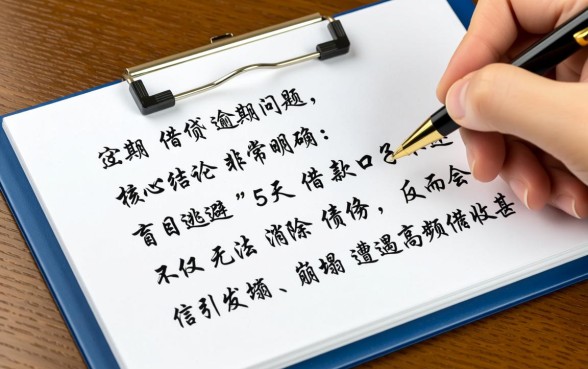 期 借贷 逾期问题，
核心结论 非常明确：
盲目逃避"5天 借款口
不仅 无法 消除 债，反而会
信引发、崩塌 遭遇高频借收甚